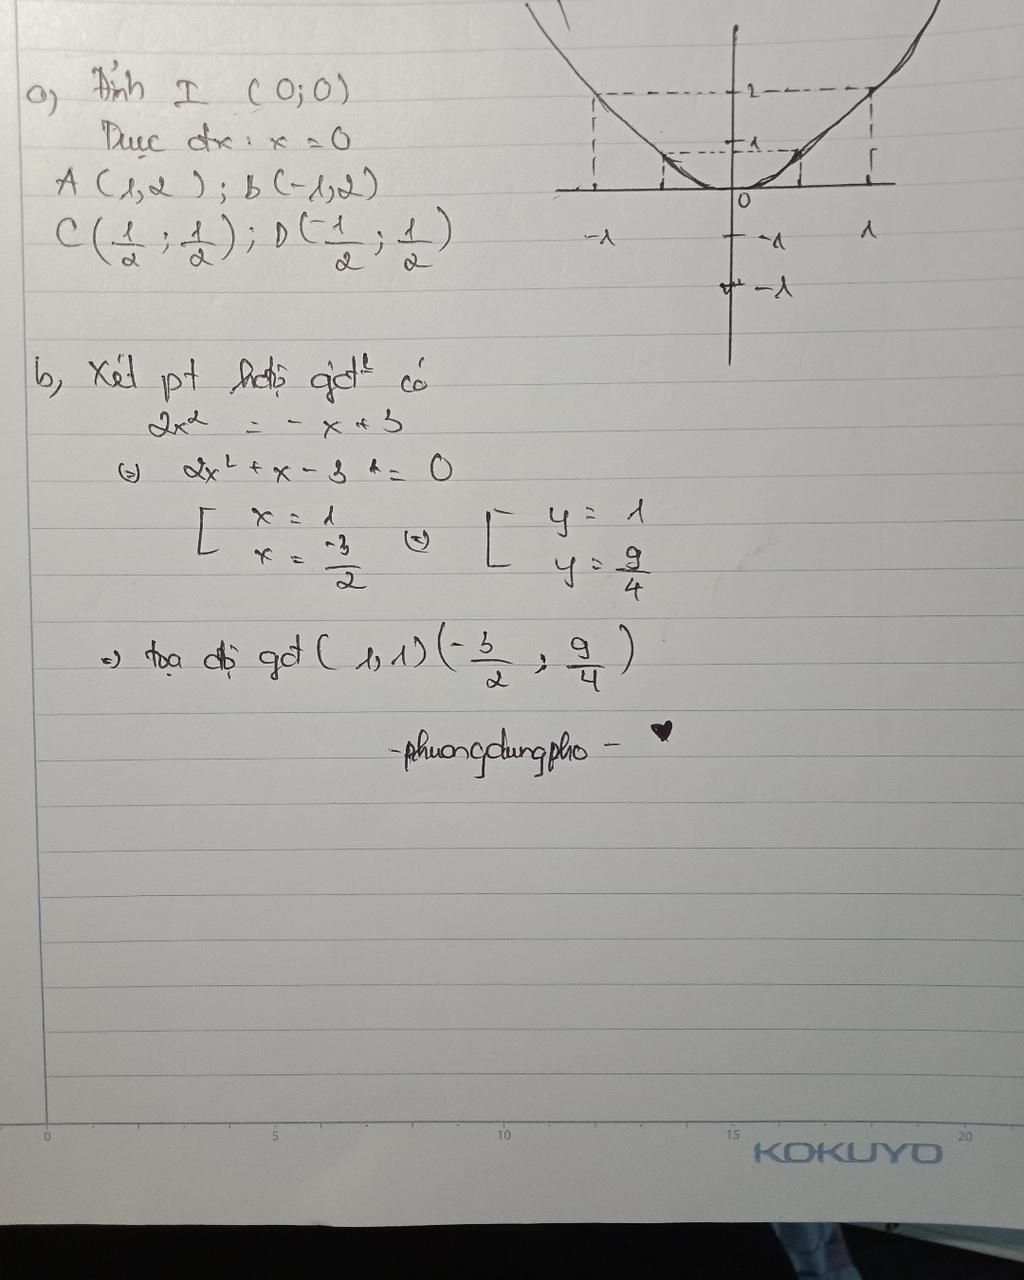 a, Đỉnh I (0;0)
Trục đx: x = 0
A (1,2); B(-1,2)
C(1/2; 1/2); D(-1/2; 1/2)
2
1
0
-1
1
-1
-1
b, Xét pt hđộ gđ² có
2x² = - x + 3
(=) 2x² + x - 3 = 0
[ x = 1 (=) [ y = 1
x = -3/2 y = 9/4
=> tọa độ gđ (1,1) (-3/2; 9/4)
-phuongdungpho- ♥
0 5 10 15 20
KOKUYO